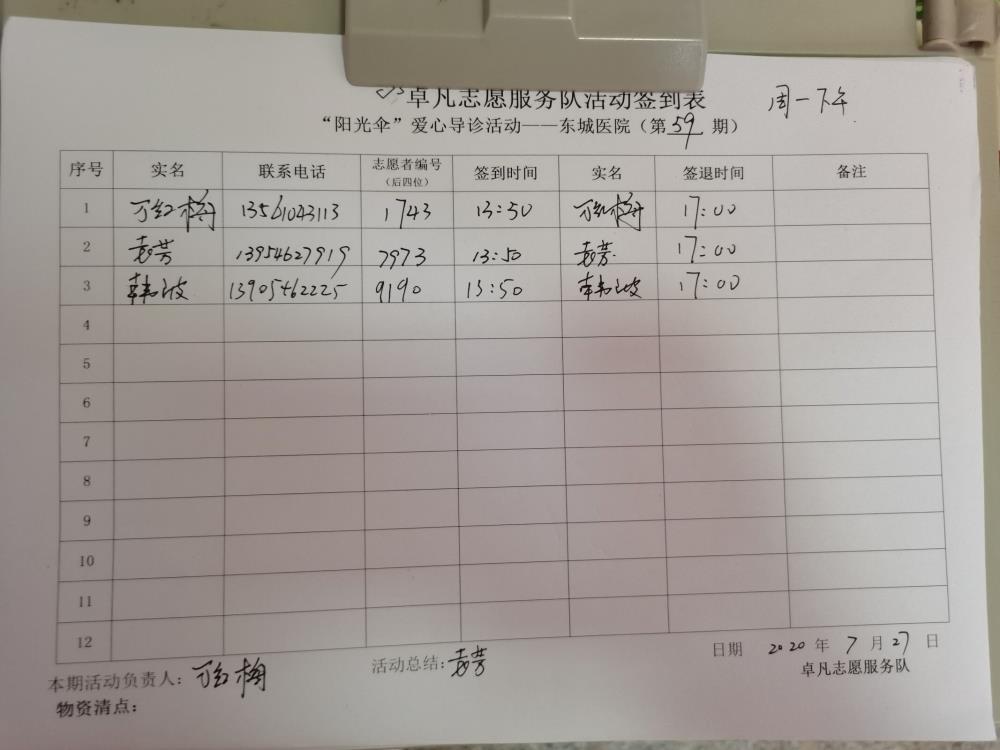 卓凡志愿服务队活动签到表 周一下午
“阳光伞”爱心导诊活动——东城医院（第59期）
序号 实名 联系电话 志愿者编号（后四位） 签到时间 实名 签退时间 备注
1 万红梅 13561043113 1743 13:50 万红梅 17:00
2 袁芳 13954627919 7973 13:50 袁芳 17:00
3 韩波 13905462225 9190 13:50 韩波 17:00
4
5
6
7
8
9
10
11
12
日期 2020年7月27日
本期活动负责人：万红梅 活动总结:袁芳 卓凡志愿服务队
物资清点：